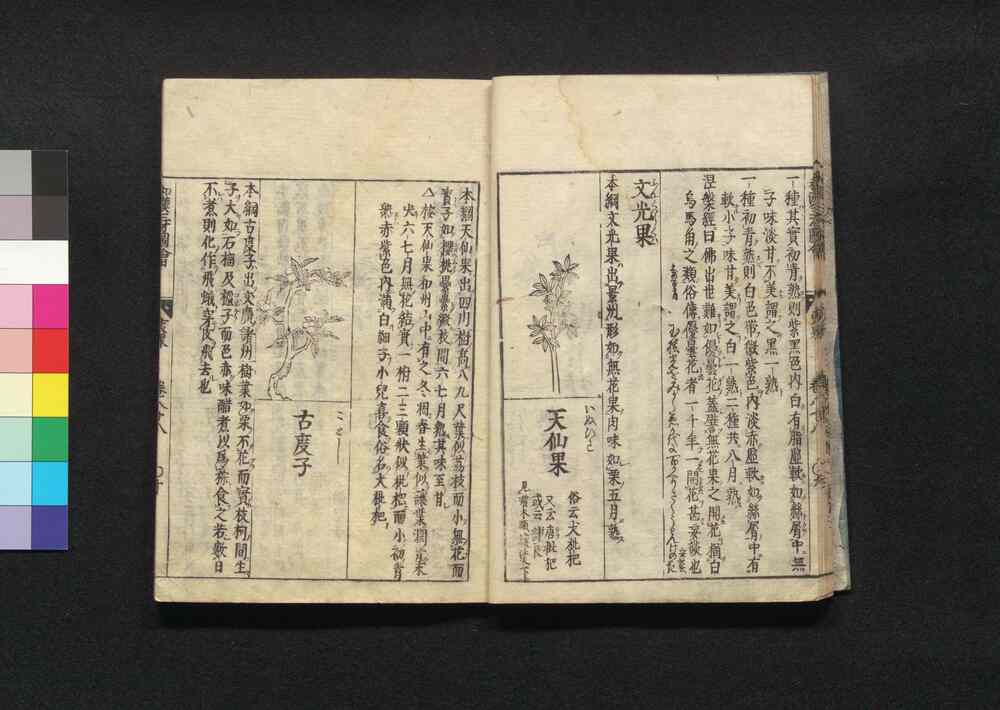 一種其實初青熟則紫黒色内白有脂膩軟如絲屑中無
子味淡甘不美謂之黒一熟
一種初青熟則白色帶微紫色内淡赤膩軟如絲屑中有
軟小子味甘美謂之白一熟二種共八月熟
涅槃經曰佛出世難如優曇花蓋譬無花果之開花猶白
烏馬角之類俗傳優曇花者一千年一開花甚妄歟也
文光果
本綱文光果出景州形如無花果肉味如栗五月熟
いぬびは
天仙果
俗云犬枇杷
又云唐枇杷
本綱天仙果出四川樹高八九尺葉似荔枝而小無花而
實子如櫻桃纍纍綴枝間六七月熟其味至甘
△按天仙果和州山中有之冬凋春生葉似讓葉濶
尖六七月無花結實一柎二三顆狀似枇杷而小初青
熟赤紫色内滿白細子小兒喜食俗名犬枇杷
古度子
本綱古度子出交廣諸州樹葉如栗不花而實枝柯間生
子大如石榴及櫨子而色赤味醋煮以爲粽食之若數日
不煮則化作飛蟻穿皮飛去也